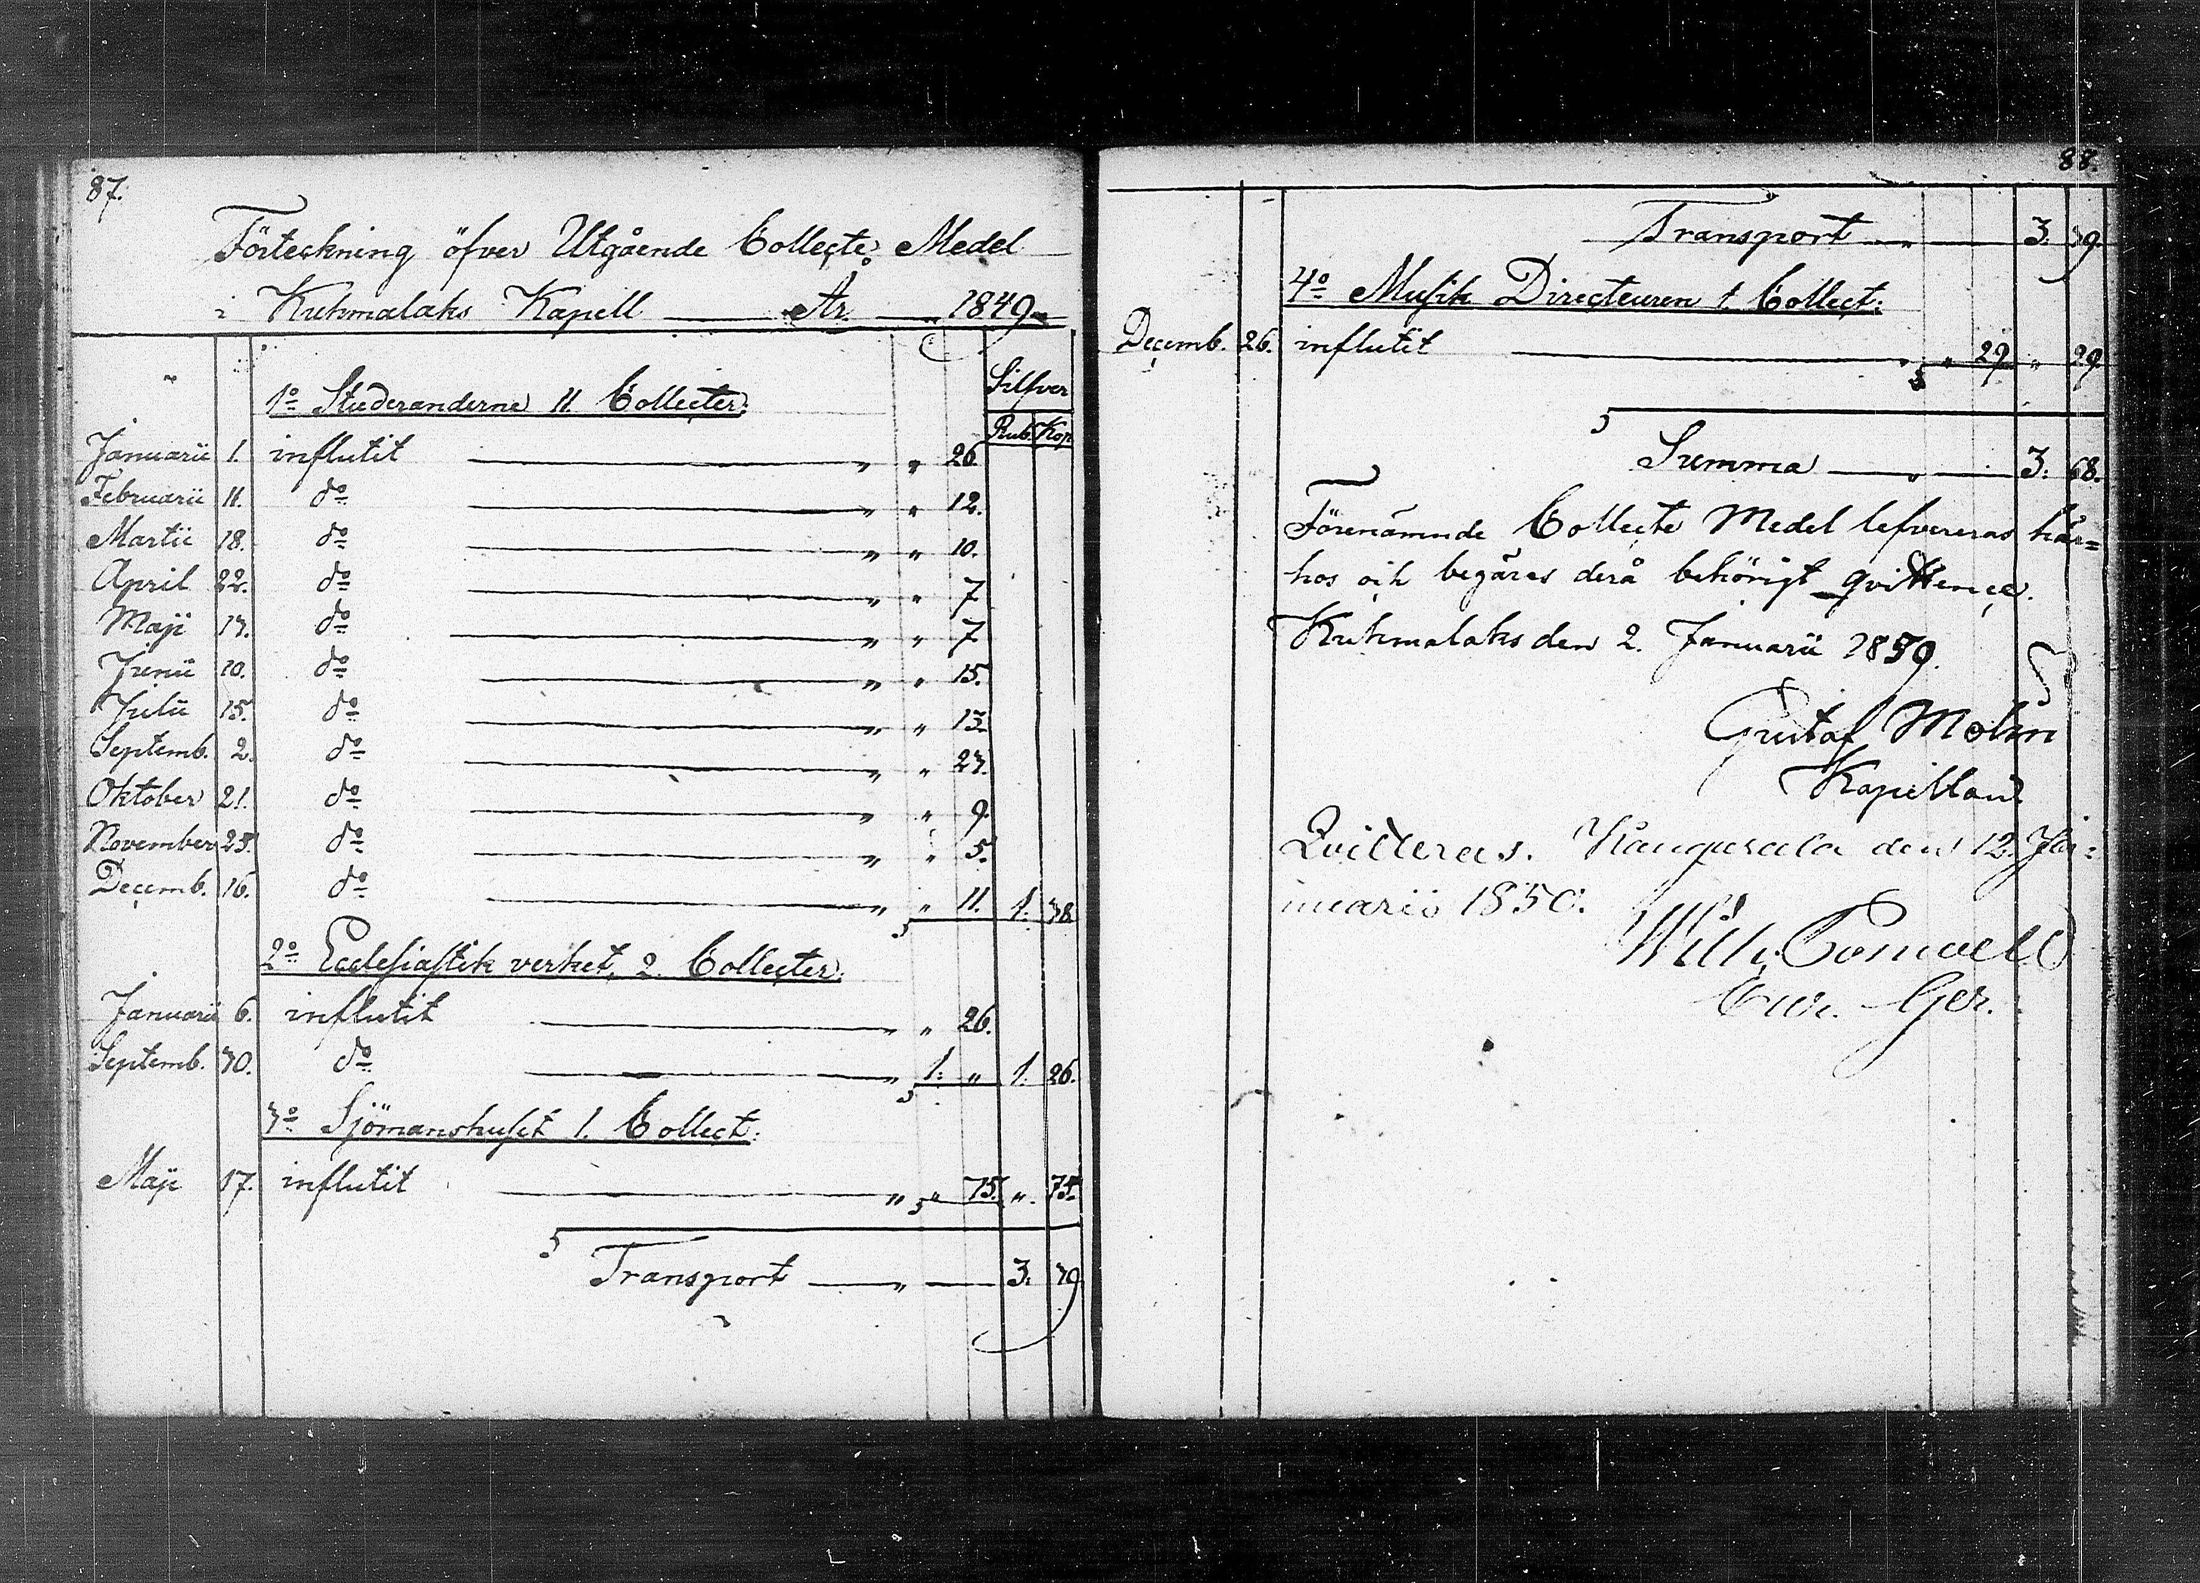 87.
Förteckning öfver Utgående Collecte Medel
i Kuhmalaks Kapell — År — 1849
Silfver
1o Studeranderne 11 Collecter:
Rub. Kop.
Januarii 1. influtit — " " 26
Februarii 11. do — " " 12.
Martii 18. do — " " 10.
April 22. do — " " 7
Maji 13. do — " " 7
Junii 10. do — " " 15.
Julii 15. do — " " 13
Septemb. 2. do — " " 23.
Oktober 21. do — " " 9.
November 25. do — " " 5.
Decemb. 16. do — " " 11. 1. 38
2o Ecclesiastik verket, 2. Collecter.
Januarii 6. influtit — " " 26.
Septemb. 30. do — " 1. " 1. 26.
3o Sjömanshuset 1. Collect:
Maji 17. influtit — " " 75. " 75.
Transport — " — 3. 39
88.
Transport — " — 3. 39.
4o Musik Directeuren 1. Collect:
Decemb. 26. influtit — " " 29 " 29.
Summa — " — 3. 68.
Förenämnde Collecte Medel lefvereras här=
hos och begäres derå behörigt qvittence.
Kuhmalaks den 2. Januarii 1850.
Gustaf Molin
Kapellan.
Qvitteras. Kangasala den 12. Ja=
nuarii 1850.
Wilh.
Cur. Ger.